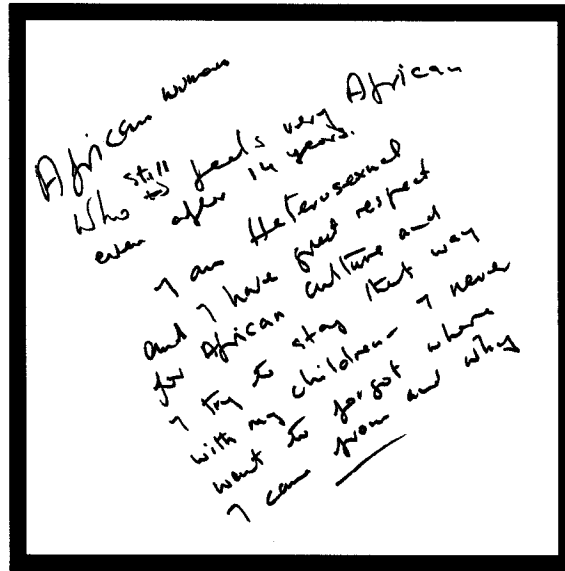 African woman
Who still feels very African
even after 14 years.
I am Heterosexual
and I have great respect
for African culture and
I try to stay that way
with my children - I never
want to forgot where
I came from and why